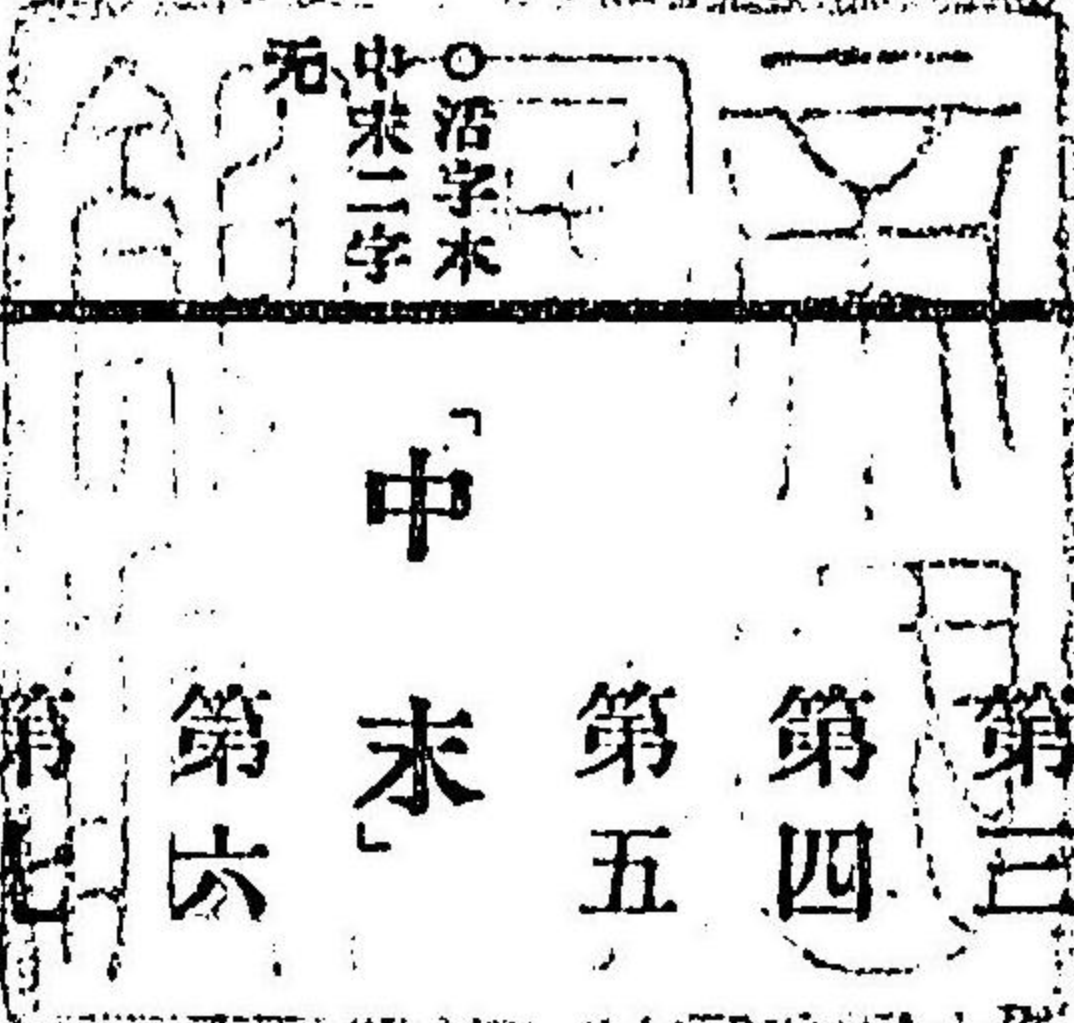 ○沿字本
中末二字
无
第三
第四
第五
「中末」
第六
第七